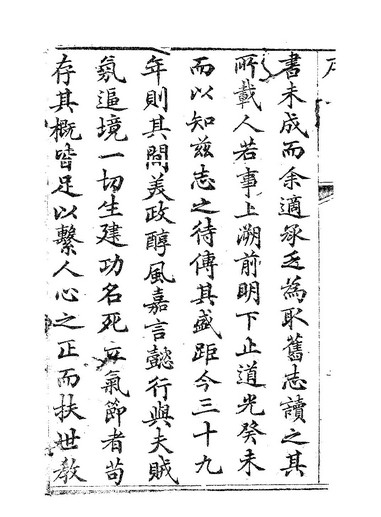 書未成而余適承乏為取舊志讀之其
所載人若事上溯前明下止道光癸未
而以知茲志之待傳其盛距今三十九
年則其間美政醇風嘉言懿行與夫賊
氛逼境一切生建功名死立氣節者苟
存其概皆足以繫人心之正而扶世教